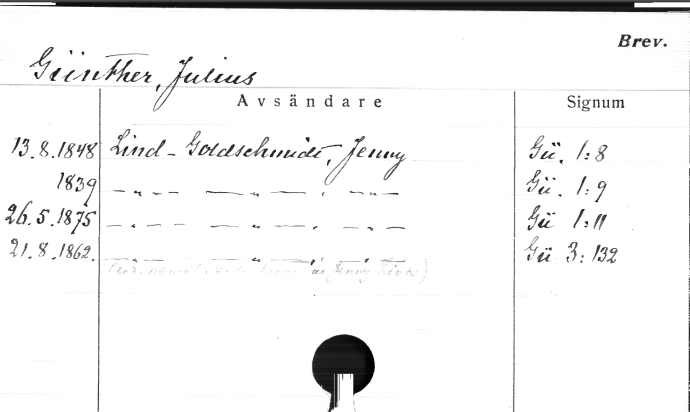 Brev.
Günther, Julius
Avsändare Signum
13.8.1848 Lind-Goldschmidt, Jenny Gü. 1:8
1839 — „ — — „ — , — „ — Gü. 1:9
26.5.1875 — „ — — „ — , — „ — Gü 1:11
21.8.1862. — „ — — „ — , — „ — Gü 3:132
av Jenny Lind)